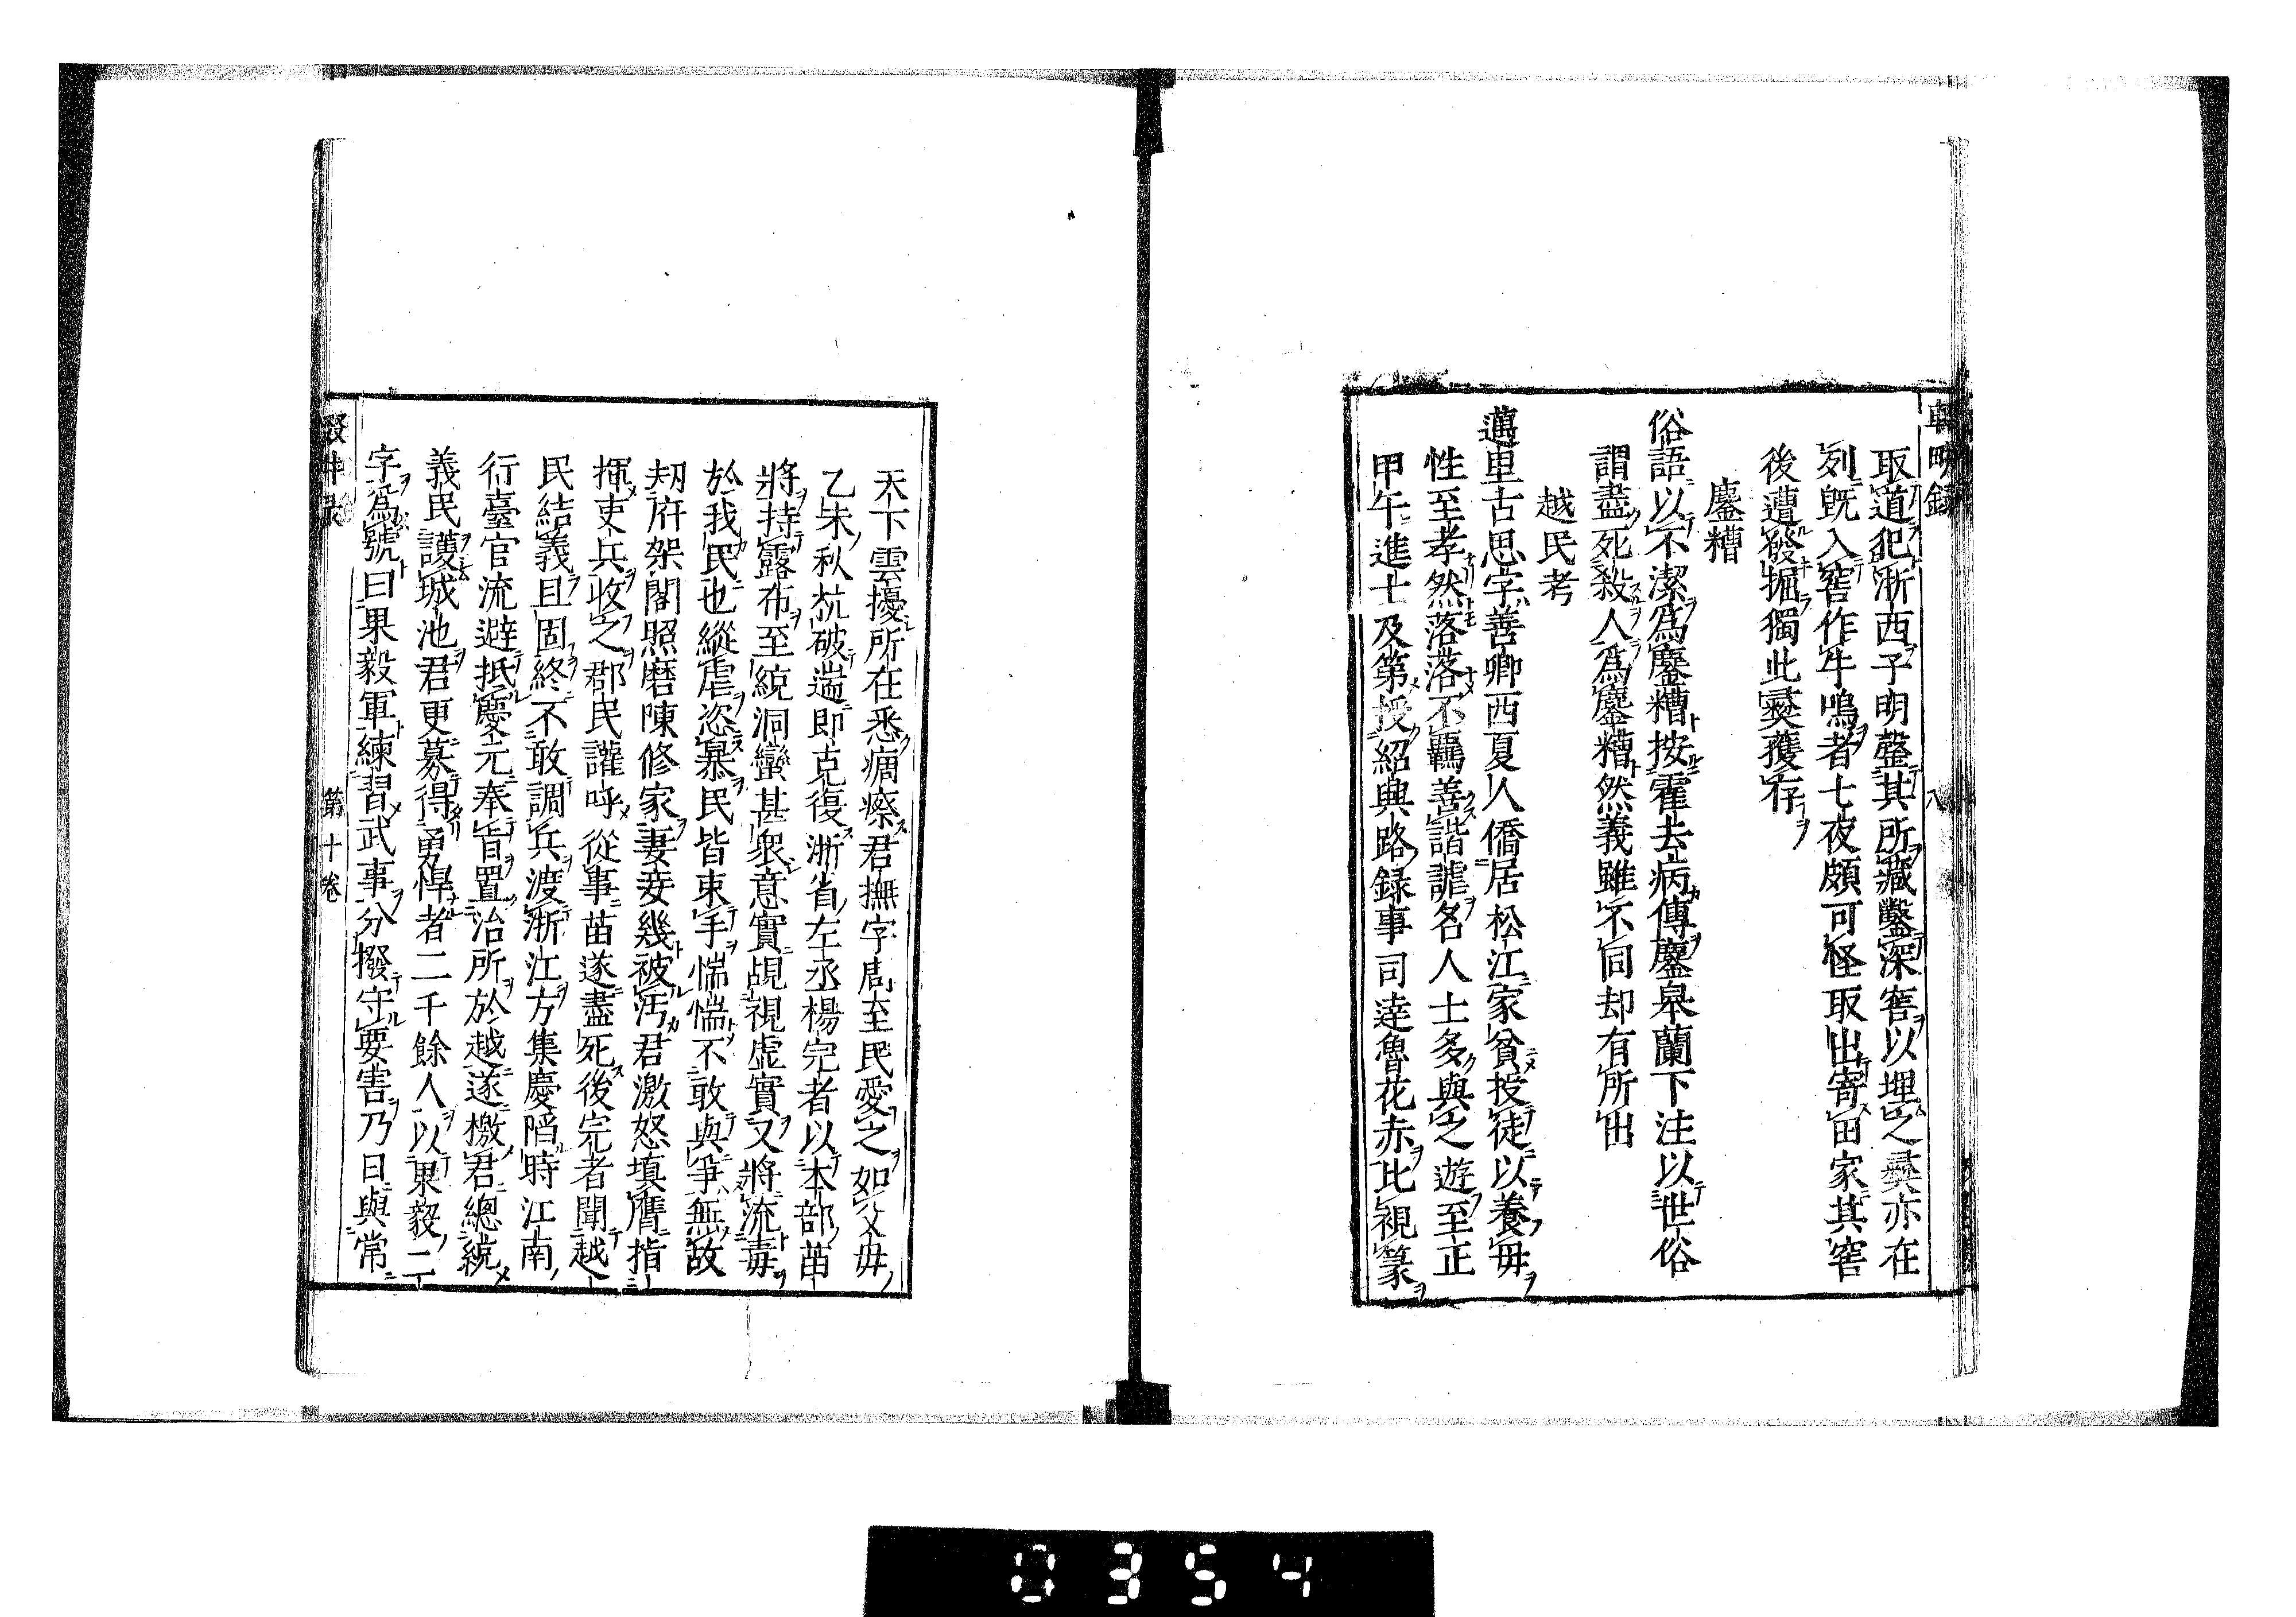 取道犯浙西子明罄其所藏鑿深窖以埋之彛亦在
列既入窖作牛鳴者七夜頗可怪取出寄田家其窖
後遭發掘獨此彛獲存
鏖糟
俗語以不潔爲鏖糟按霍去病傳鏖皋蘭下注以世俗
謂盡死殺人爲鏖糟然義雖不同却有所出
越民考
邁里古思字善卿西夏人僑居松江家貧授徒以養母
性至孝然落落不羈善諧謔名人士多與之遊至正
甲午進士及第授紹興路録事司達魯花赤比視篆
天下雲擾所在悉痌瘵君撫字周至民愛之如父母
乙未秋杭破遄即克復浙省左丞楊完者以本部苗
將持露布至統洞蠻甚衆意實覘視虚實又將流毒
於我民也縱虐恣暴民皆束手惴惴不敢與爭無故
刼府架閣照磨陳修家妻妾幾被汚君激怒填膺指
揮吏兵收之郡民讙呼從事苗遂盡死後完者聞越
民結義且固終不敢調兵渡浙江方集慶䧟時江南
行臺官流避抵慶元奉旨置治所於越遂檄君總統
義民護城池君更募得勇悍者二千餘人以果毅二
字爲號曰果毅軍練習武事分撥守要害乃日與常
第十卷
八
0354